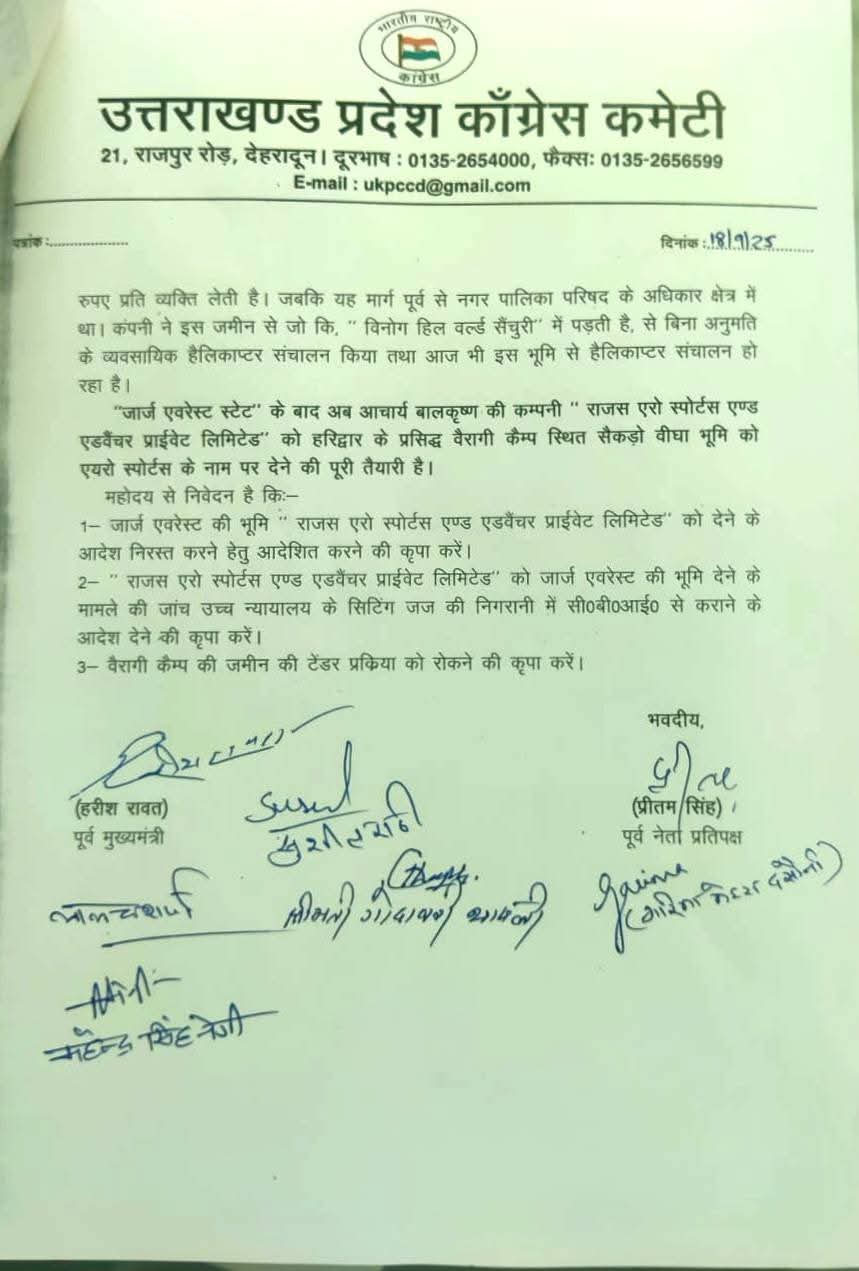 भारतीय राष्ट्रीय
कांग्रेस
उत्तराखण्ड प्रदेश काँग्रेस कमेटी
21, राजपुर रोड़, देहरादून। दूरभाष : 0135-2654000, फैक्सः 0135-2656599
E-mail : ukpccd@gmail.com
पत्रांक :..................... दिनांक :18/9/25............
रुपए प्रति व्यक्ति लेती है। जबकि यह मार्ग पूर्व से नगर पालिका परिषद के अधिकार क्षेत्र में
था। कंपनी ने इस जमीन से जो कि, " विनोग हिल वर्ल्ड सैंचुरी" में पड़ती है, से बिना अनुमति
के व्यवसायिक हैलिकाप्टर संचालन किया तथा आज भी इस भूमि से हैलिकाप्टर संचालन हो
रहा है।
"जार्ज एवरेस्ट स्टेट" के बाद अब आचार्य बालकृष्ण की कम्पनी " राजस एरो स्पोर्टस एण्ड
एडवैंचर प्राईवेट लिमिटेड" को हरिद्वार के प्रसिद्ध वैरागी कैम्प स्थित सैकड़ो वीघा भूमि को
एयरो स्पोर्टस के नाम पर देने की पूरी तैयारी है।
महोदय से निवेदन है कि:–
1– जार्ज एवरेस्ट की भूमि " राजस एरो स्पोर्टस एण्ड एडवैंचर प्राईवेट लिमिटेड" को देने के
आदेश निरस्त करने हेतु आदेशित करने की कृपा करें।
2– " राजस एरो स्पोर्टस एण्ड एडवैंचर प्राईवेट लिमिटेड" को जार्ज एवरेस्ट की भूमि देने के
मामले की जांच उच्च न्यायालय के सिटिंग जज की निगरानी में सी0बी0आई0 से कराने के
आदेश देने की कृपा करें।
3– वैरागी कैम्प की जमीन की टेंडर प्रकिया को रोकने की कृपा करें।
भवदीय,
(हरीश रावत)
पूर्व मुख्यमंत्री
सुशील राठी
(प्रीतम सिंह)
पूर्व नेता प्रतिपक्ष
लालचन्द शर्मा
श्रीमती गोदावरी थापली
Garima
(गरिमा मेहरा दसौनी)
महेन्द्र सिंह नेगी